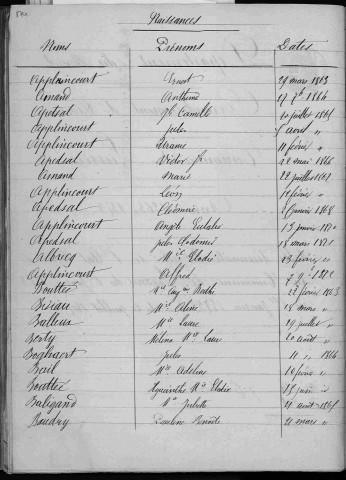 Naissances
Noms Prénoms Dates
Applaincourt Ernest 29 mars 1863
Amand Anthime 17 7bre 1864
Apedsal Jh Camille 10 juillet 1865
Applincourt Jules 5 avril "
Applaincourt Pirame 11 février "
Apedsal Victor Jh 22 mai 1866
Amand Marie 22 juillet 1867
Applincourt Léon février "
Apedsal Cléonice janvier 1868
Applincourt Angèle Eulalie 13 janvier 1870
Apedsal Jules Clodomir 18 mars 1871
Albrecq Mie Elodie 23 février "
Applincourt Alfred 7 9bre 1872
Bouttée Mie Eug. Berthe 22 février 1863
Bizeau Mie Céline 28 mars "
Balleux Mie Laure 29 juillet "
Berly Hélène Mie Laure 20 août "
Boghaert Jules 11 " 1864
Bail Mie Adeline 18 février "
Bouttée Hyacinthe Mie Elodie 15 juin "
Baligand Mie Juliette 21 août 1865
Baudry Pauline Benoite 21 mars "